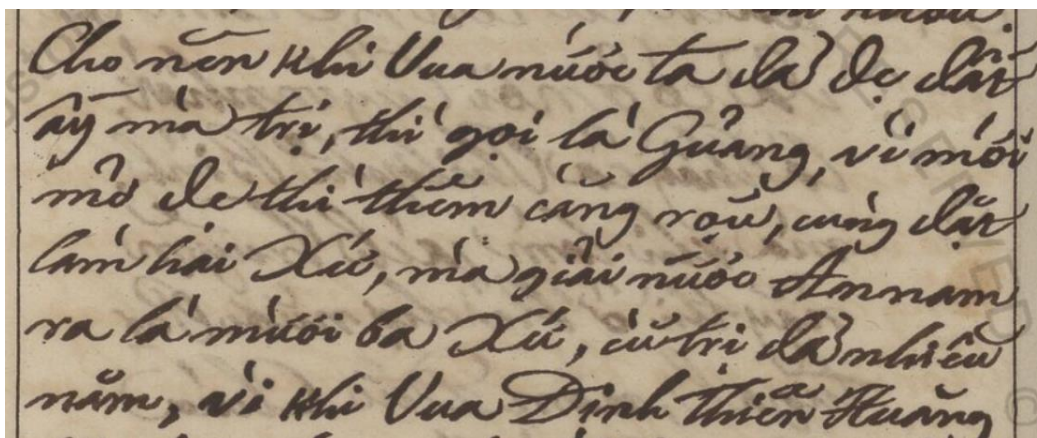 Cho nên khi Vua nước ta đã dẹ đất
ấy mà trị, thì gọi là Quảng, vì mới
mở de thì thêm càng rọũ, cùng đặt
làm hai Xứ, mà giải nước Annam
ra là mười ba Xứ, cũ trị đã nhiều
năm, vì khi Vua Đinh thiên Huăng